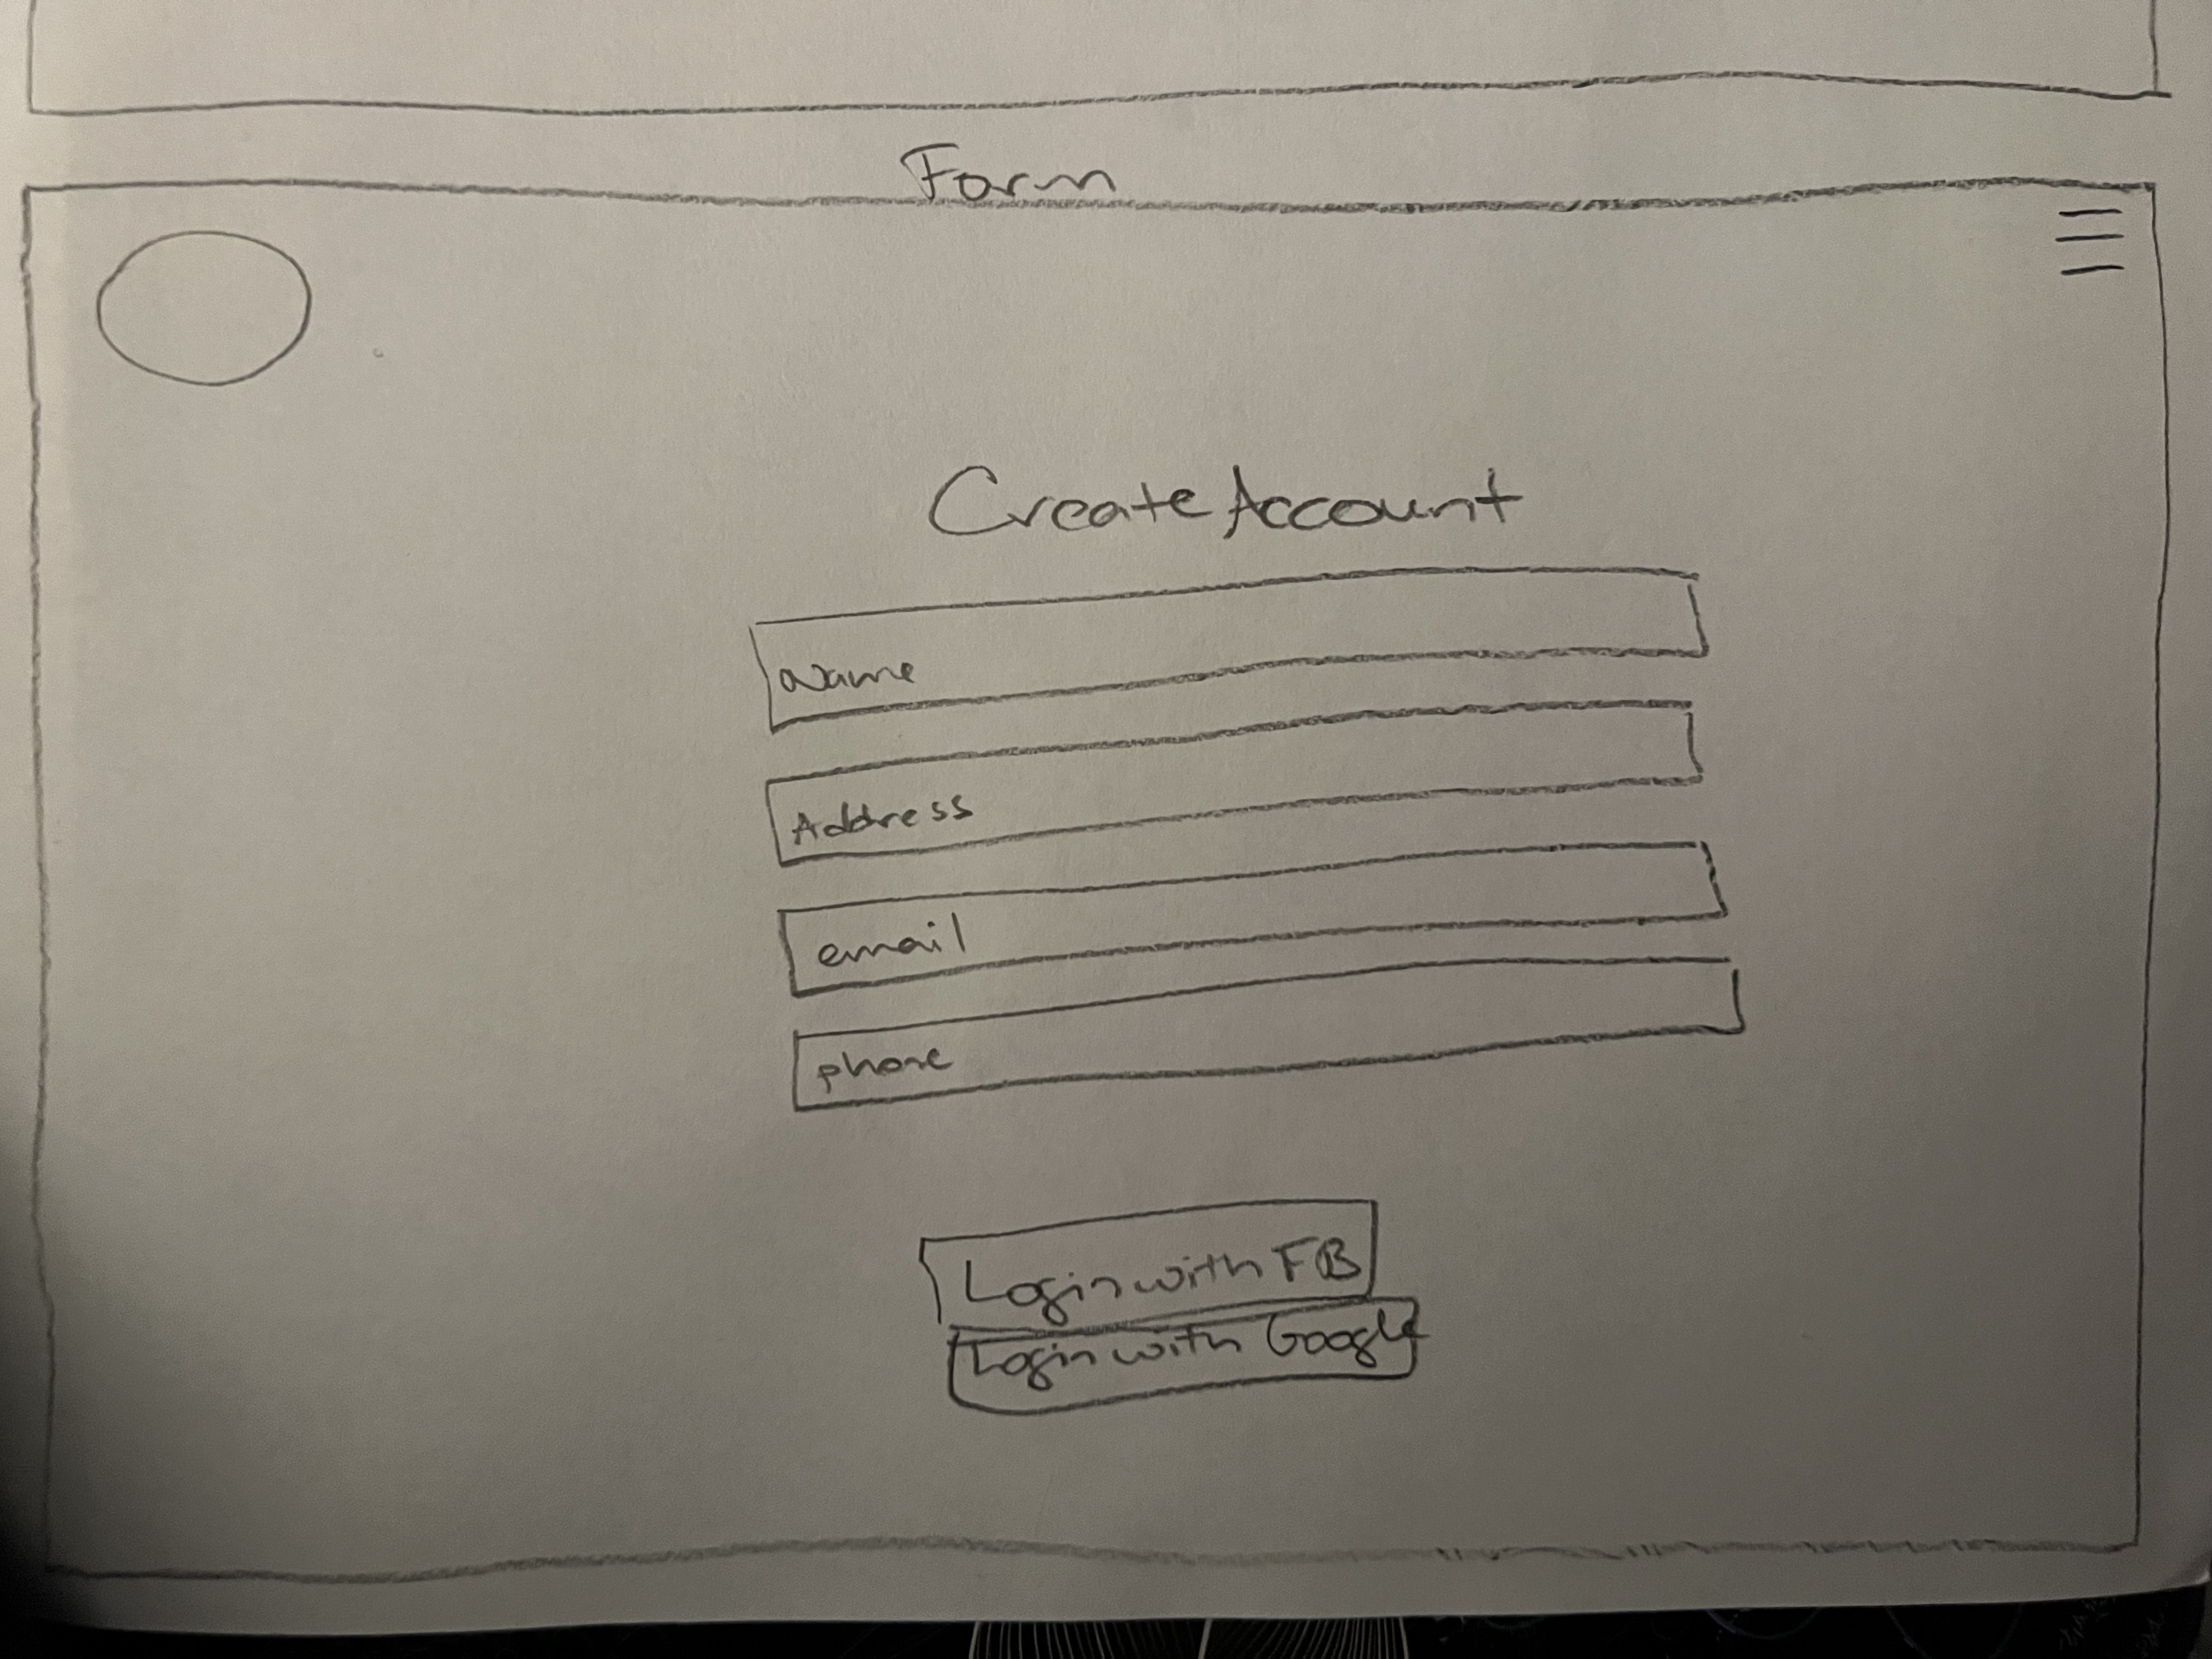 Form
Create Account
Name
Address
email
phone
Login with FB
Login with Google